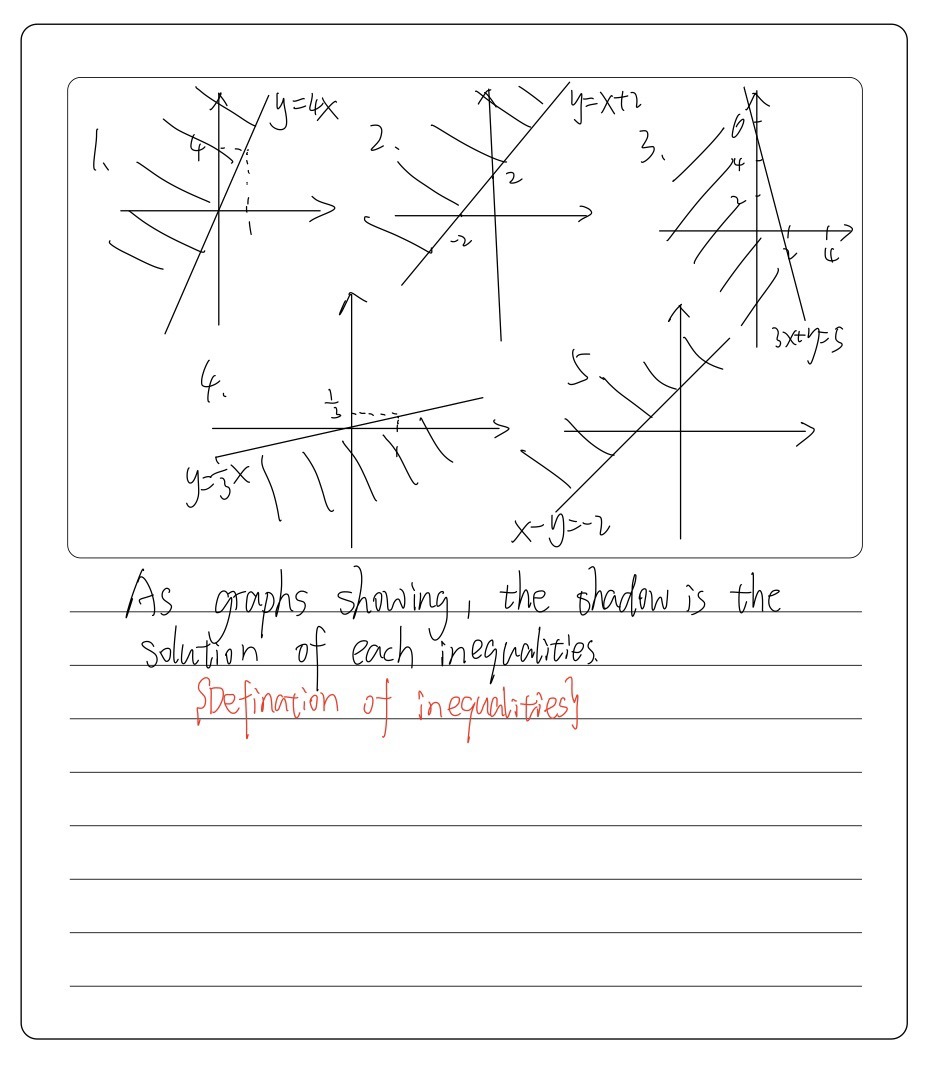 1.
y=4x
4
2.
y=x+2
2
-2
3.
6
4
2
2
4
3x+y=5
4.
1/3
y=1/3x
5
x-y=-2
As graphs showing, the shadow is the
solution of each inequalities.
{Defination of inequalities}